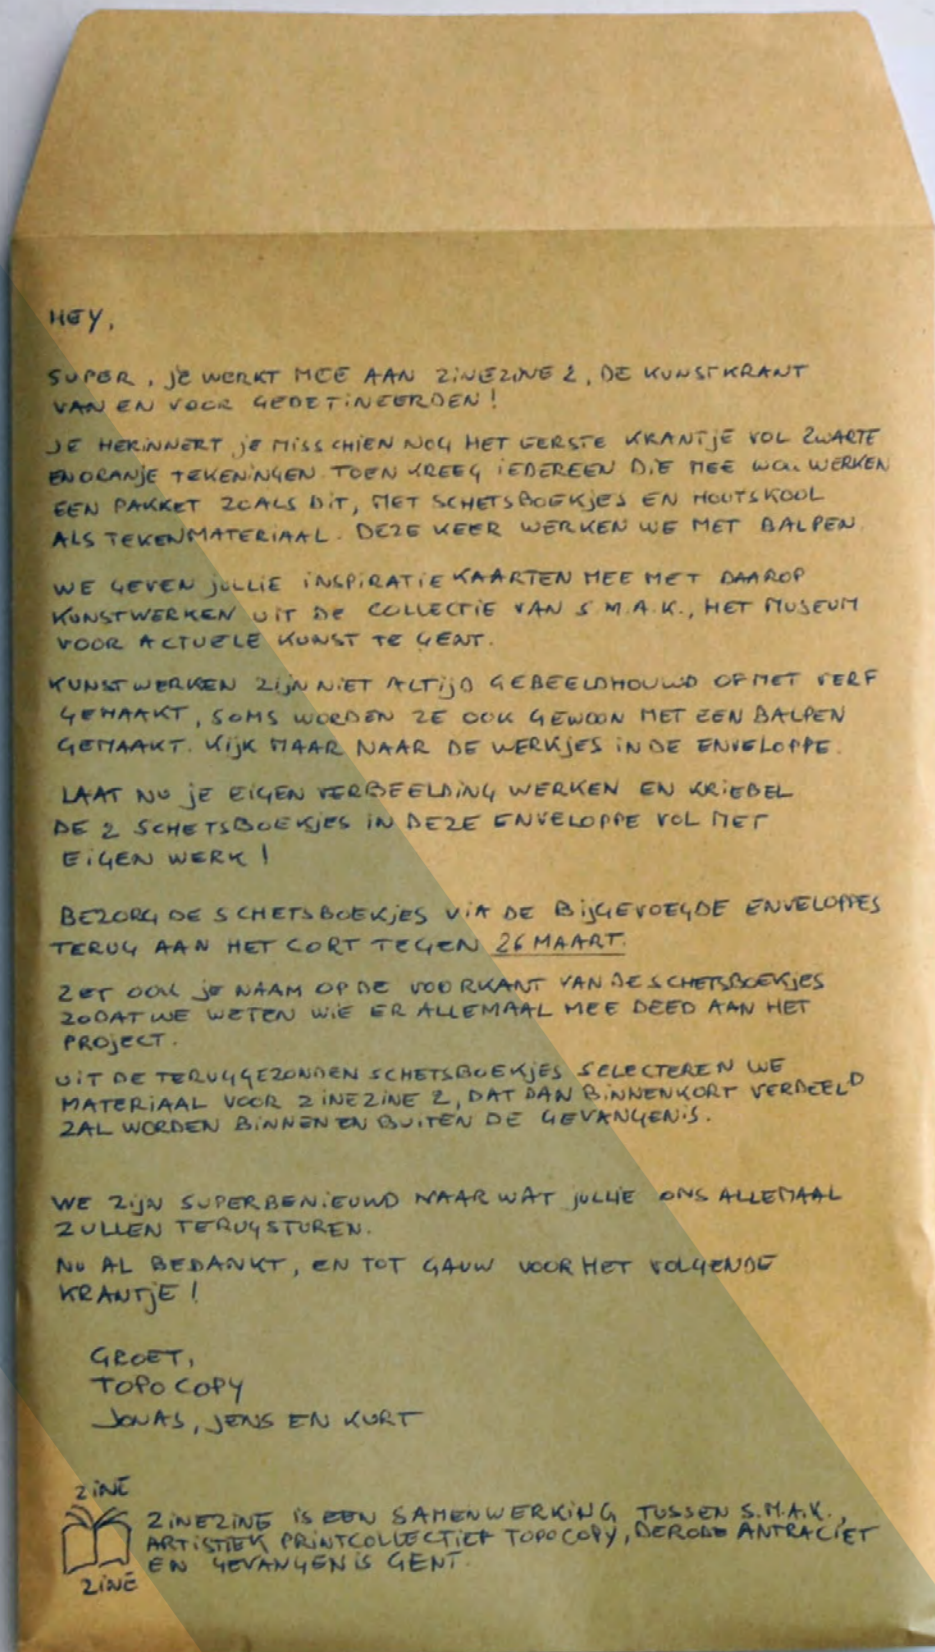 HEY,
SUPER, JE WERKT MEE AAN ZINEZINE 2, DE KUNSTKRANT
VAN EN VOOR GEDETINEERDEN!
JE HERINNERT JE MISSCHIEN NOG HET EERSTE KRANTJE VOL ZWARTE
EN ORANJE TEKENINGEN. TOEN KREEG IEDEREEN DIE MEE WOU WERKEN
EEN PAKKET ZOALS DIT, MET SCHETSBOEKJES EN HOUTSKOOL
ALS TEKENMATERIAAL. DEZE KEER WERKEN WE MET BALPEN.
WE GEVEN JULLIE INSPIRATIEKAARTEN MEE MET DAAROP
KUNSTWERKEN UIT DE COLLECTIE VAN S.M.A.K., HET MUSEUM
VOOR ACTUELE KUNST TE GENT.
KUNSTWERKEN ZIJN NIET ALTIJD GEBEELDHOUWD OF MET VERF
GEMAAKT, SOMS WORDEN ZE OOK GEWOON MET EEN BALPEN
GEMAAKT. KIJK MAAR NAAR DE WERKJES IN DE ENVELOPPE.
LAAT NU JE EIGEN VERBEELDING WERKEN EN KRIEBEL
DE 2 SCHETSBOEKJES IN DEZE ENVELOPPE VOL MET
EIGEN WERK!
BEZORG DE SCHETSBOEKJES VIA DE BIJGEVOEGDE ENVELOPPES
TERUG AAN HET CORT TEGEN 26 MAART.
ZET OOK JE NAAM OP DE VOORKANT VAN DE SCHETSBOEKJES
ZODAT WE WETEN WIE ER ALLEMAAL MEE DEED AAN HET
PROJECT.
UIT DE TERUGGEZONDEN SCHETSBOEKJES SELECTEREN WE
MATERIAAL VOOR ZINEZINE 2, DAT DAN BINNENKORT VERDEELD
ZAL WORDEN BINNEN EN BUITEN DE GEVANGENIS.
WE ZIJN SUPERBENIEUWD NAAR WAT JULLIE ONS ALLEMAAL
ZULLEN TERUGSTUREN.
NU AL BEDANKT, EN TOT GAUW VOOR HET VOLGENDE
KRANTJE!
GROET,
TOPO COPY
JONAS, JENS EN KURT
ZINE
ZINE
ZINEZINE IS EEN SAMENWERKING TUSSEN S.M.A.K.,
ARTISTIEK PRINTCOLLECTIEF TOPO COPY, DE RODE ANTRACIET
EN GEVANGENIS GENT.